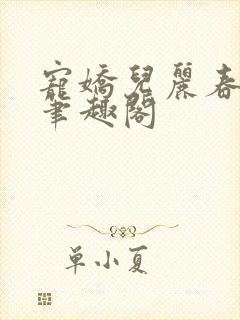 寵嬌兒麗春
筆趣閣
單小夏